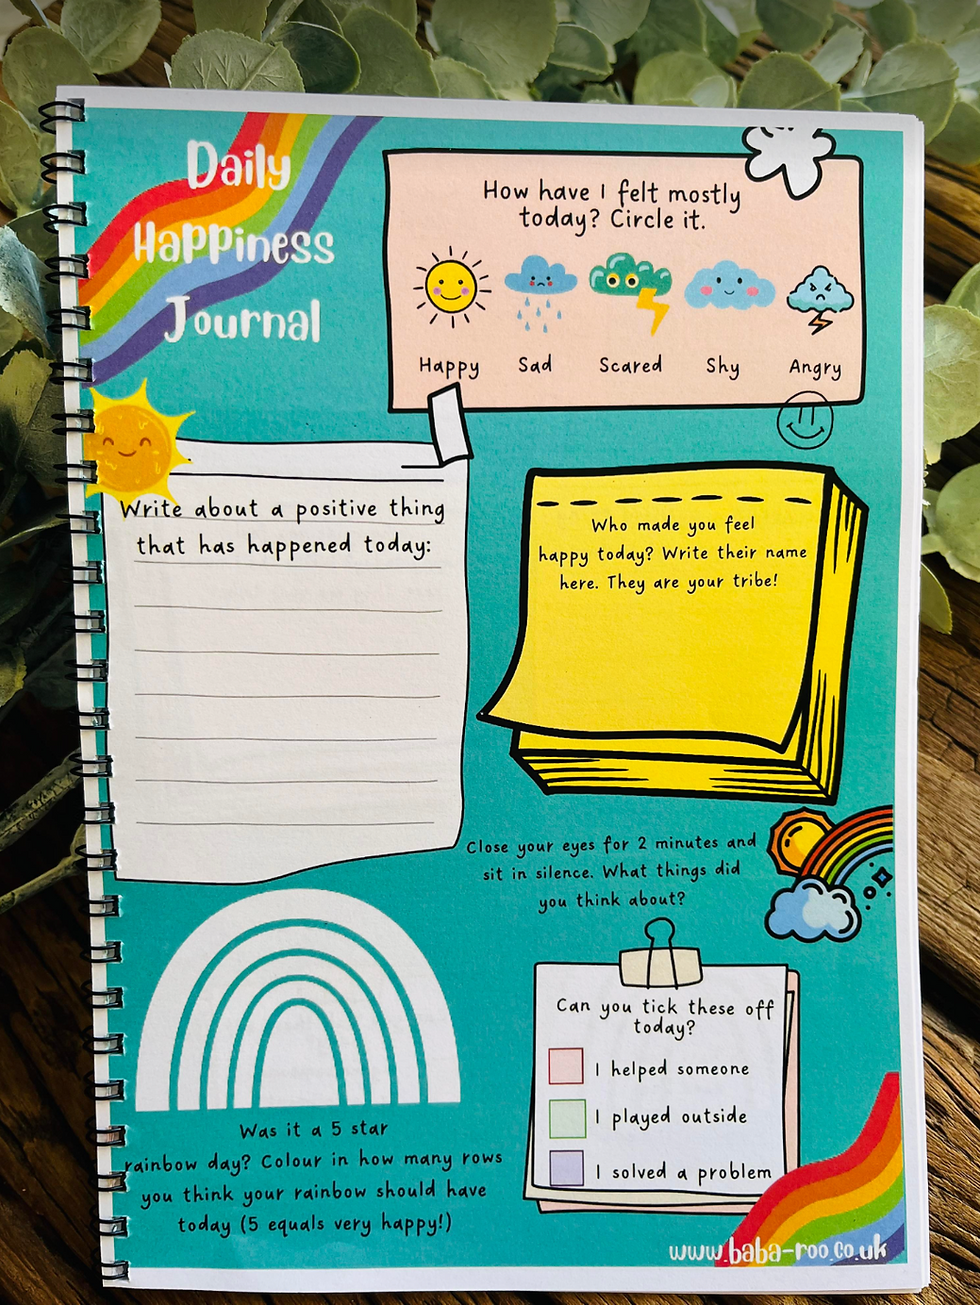 Daily
Happiness
Journal
How have I felt mostly
today? Circle it.
Happy Sad Scared Shy Angry
Write about a positive thing
that has happened today:
Who made you feel
happy today? Write their name
here. They are your tribe!
Close your eyes for 2 minutes and
sit in silence. What things did
you think about?
Can you tick these off
today?
I helped someone
I played outside
I solved a problem
Was it a 5 star
rainbow day? Colour in how many rows
you think your rainbow should have
today (5 equals very happy!)
www.baba-roo.co.uk